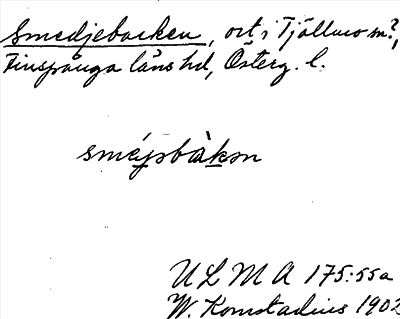 Smedjebacken, ort i Tjällmo sn?,
Finspånga läns hd, Österg. l.
sméjsbàkən
ULMA 175:55a
W. Komstadius 1902